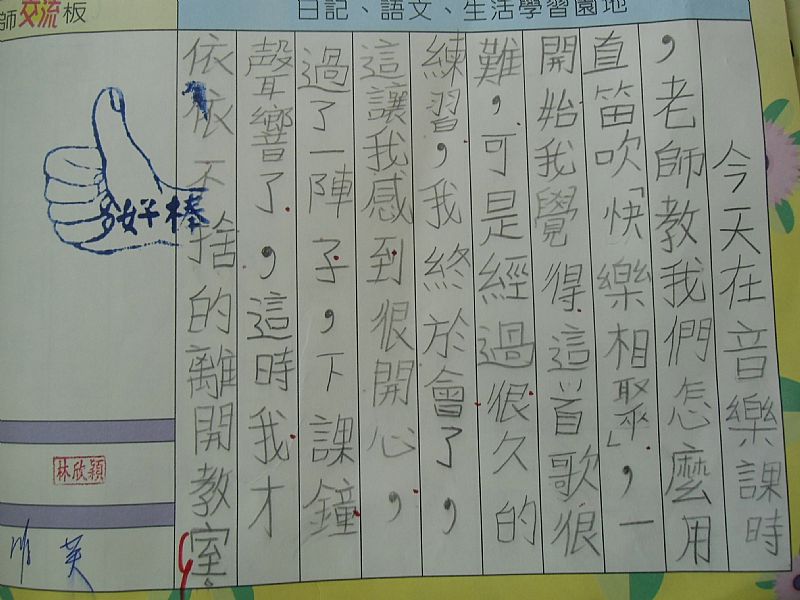 師交流板
日記、語文、生活學習園地
今天在音樂課時
，老師教我們怎麼用
直笛吹「快樂相聚」，一
開始我覺得這首歌很
難，可是經過很久的
練習，我終於會了，
這讓我感到很開心，
過了一陣子，下課鐘
聲響了，這時我才
依依不捨的離開教室。
好棒
林欣穎